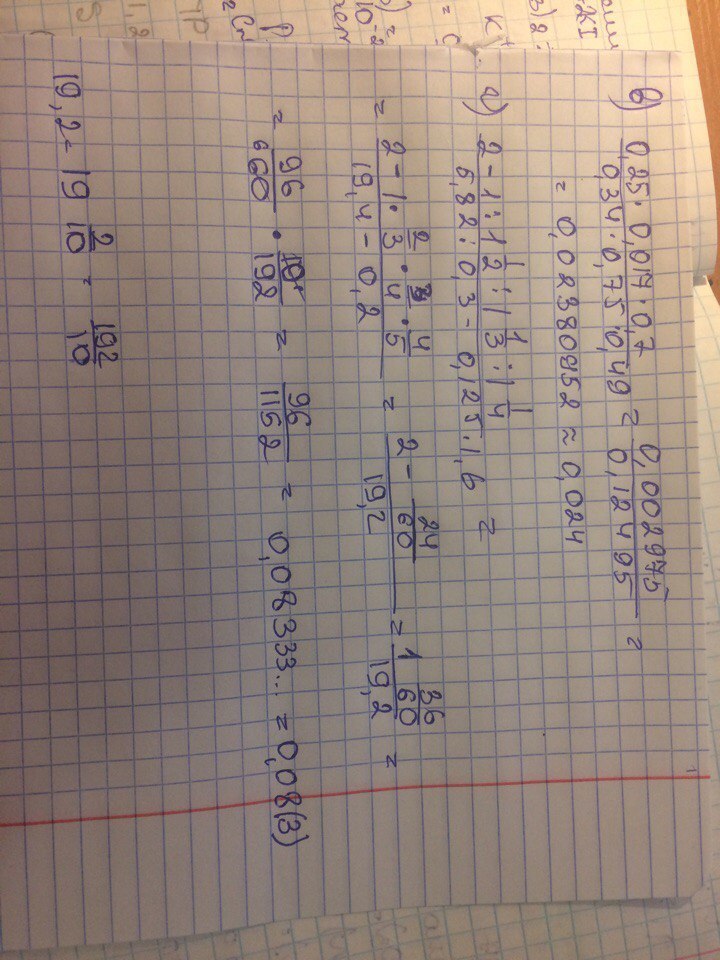 в) (0,25 · 0,017 · 0,7)/(0,34 · 0,75 · 0,49) = 0,002975/0,12495 =
= 0,02380952 ≈ 0,024
а) (2 - 1 : 1 1/2 : 1 1/3 : 1 1/4)/(5,82 : 0,3 - 0,125 · 1,6) =
= (2 - 1 · 2/3 · 3/4 · 4/5)/(19,4 - 0,2) = (2 - 24/60)/19,2 = (1 36/60)/19,2 =
= 96/60 · 10/192 = 96/1152 = 0,08333... = 0,08(3)
19,2 = 19 2/10 = 192/10